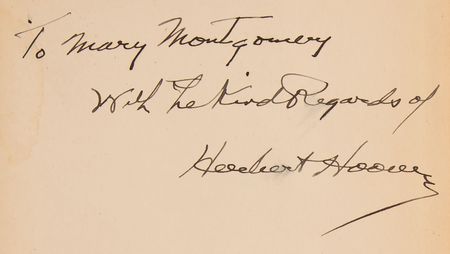 To Mary Montgomery
With The Kind Regards of
Herbert Hoover